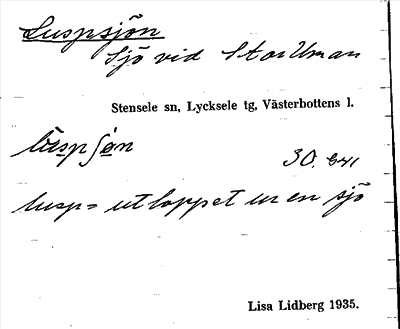 Luspsjön
Sjö vid Storuman
Stensele sn, Lycksele tg, Västerbottens l.
30.
lusp = utloppet ur en sjö
Lisa Lidberg 1935.